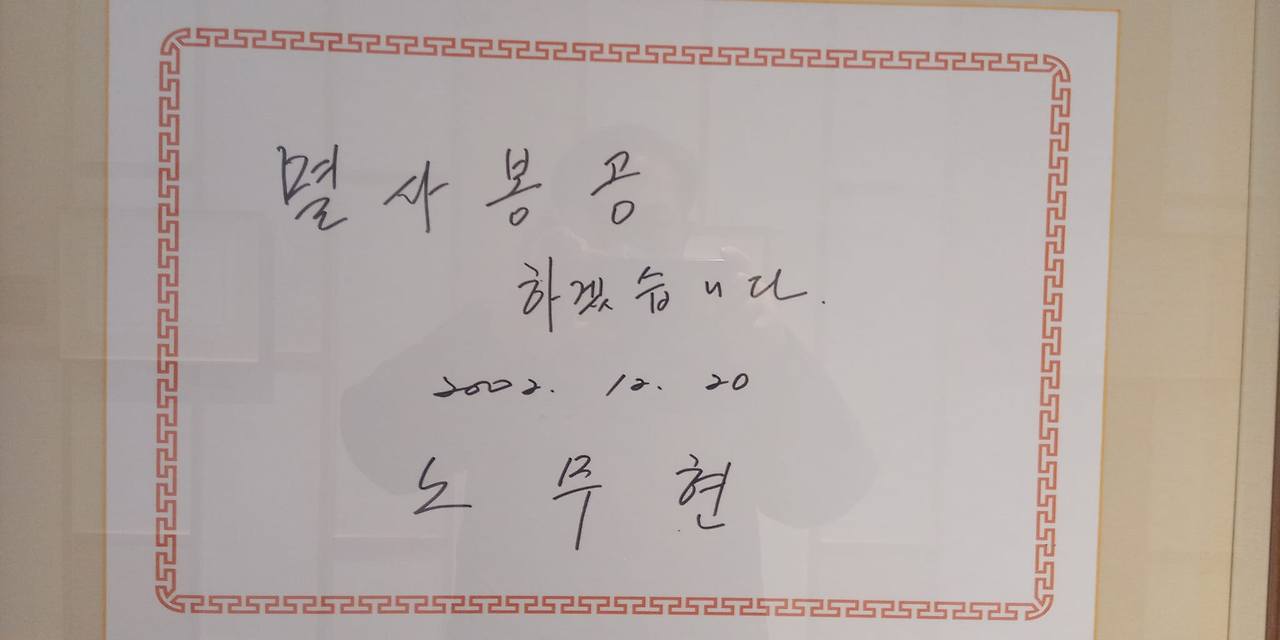 멸사봉공
하겠습니다.
2002. 12. 20
노무현